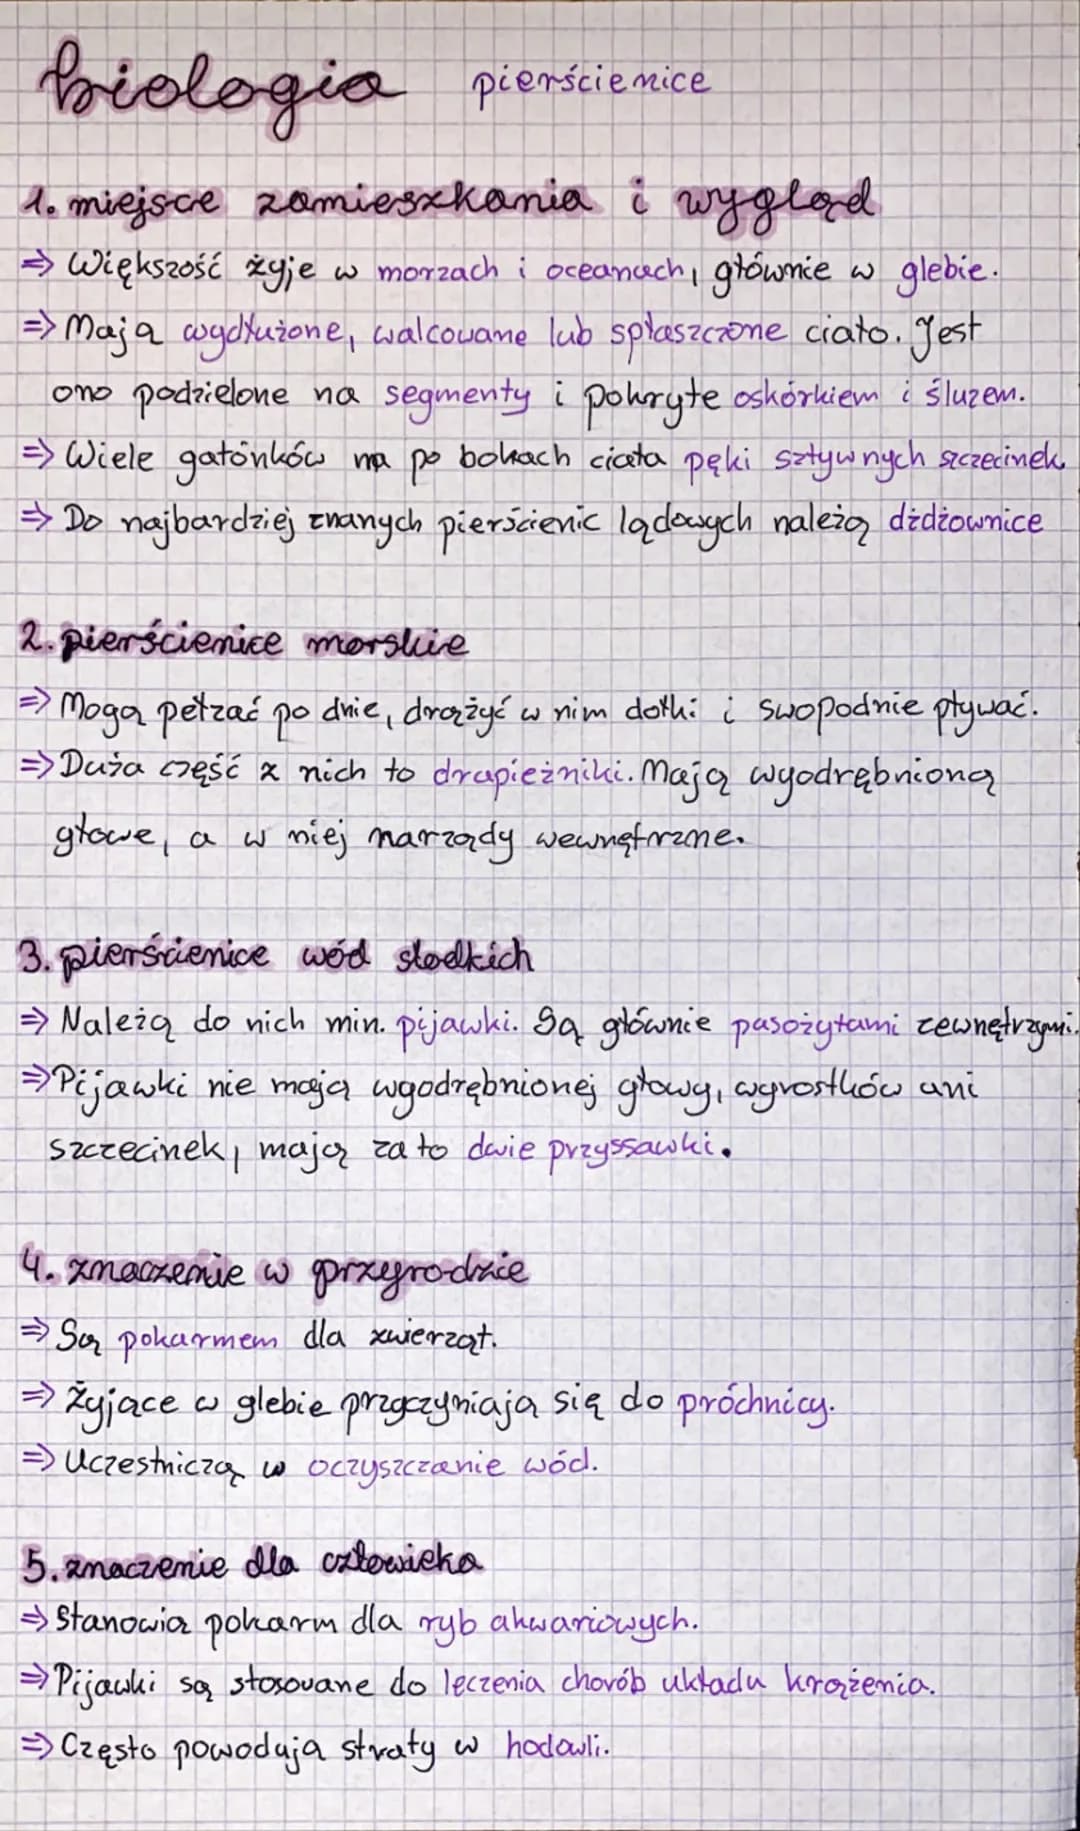 biologia pierścienice
1. miejsce zamieszkania i wygląd
⇒ Większość żyje w morzach i oceanach, głównie w glebie.
⇒ Mają wydłużone, walcowane lub spłaszczone ciało. Jest
ono podzielone na segmenty i pokryte oskórkiem i śluzem.
⇒ Wiele gatónków ma po bokach ciała pęki sztywnych szczecinek.
⇒ Do najbardziej znanych pierścienic lądowych należą dżdżownice
2. pierścienice morskie
⇒ Mogą pełzać po dnie, drążyć w nim dołki i swopodnie pływać.
⇒ Duża część z nich to drapieżniki. Mają wyodrębnioną
głowe, a w niej narządy wewnętrzne.
3. pierścienice wód słodkich
⇒ Należą do nich min. pijawki. Są głównie pasożytami zewnętrzymi.
⇒ Pijawki nie mają wyodrębnionej głowy, wyrostków ani
szczecinek, mają za to dwie przyssawki.
4. znaczenie w przyrodzie
⇒ Są pokarmem dla zwierząt.
⇒ Żyjące w glebie przyczyniają się do próchnicy.
⇒ Uczestniczą w oczyszczanie wód.
5. znaczenie dla człowieka
⇒ Stanowią pokarm dla ryb akwariowych.
⇒ Pijawki są stosowane do leczenia chorób układu krążenia.
⇒ Często powodują straty w hodowli.